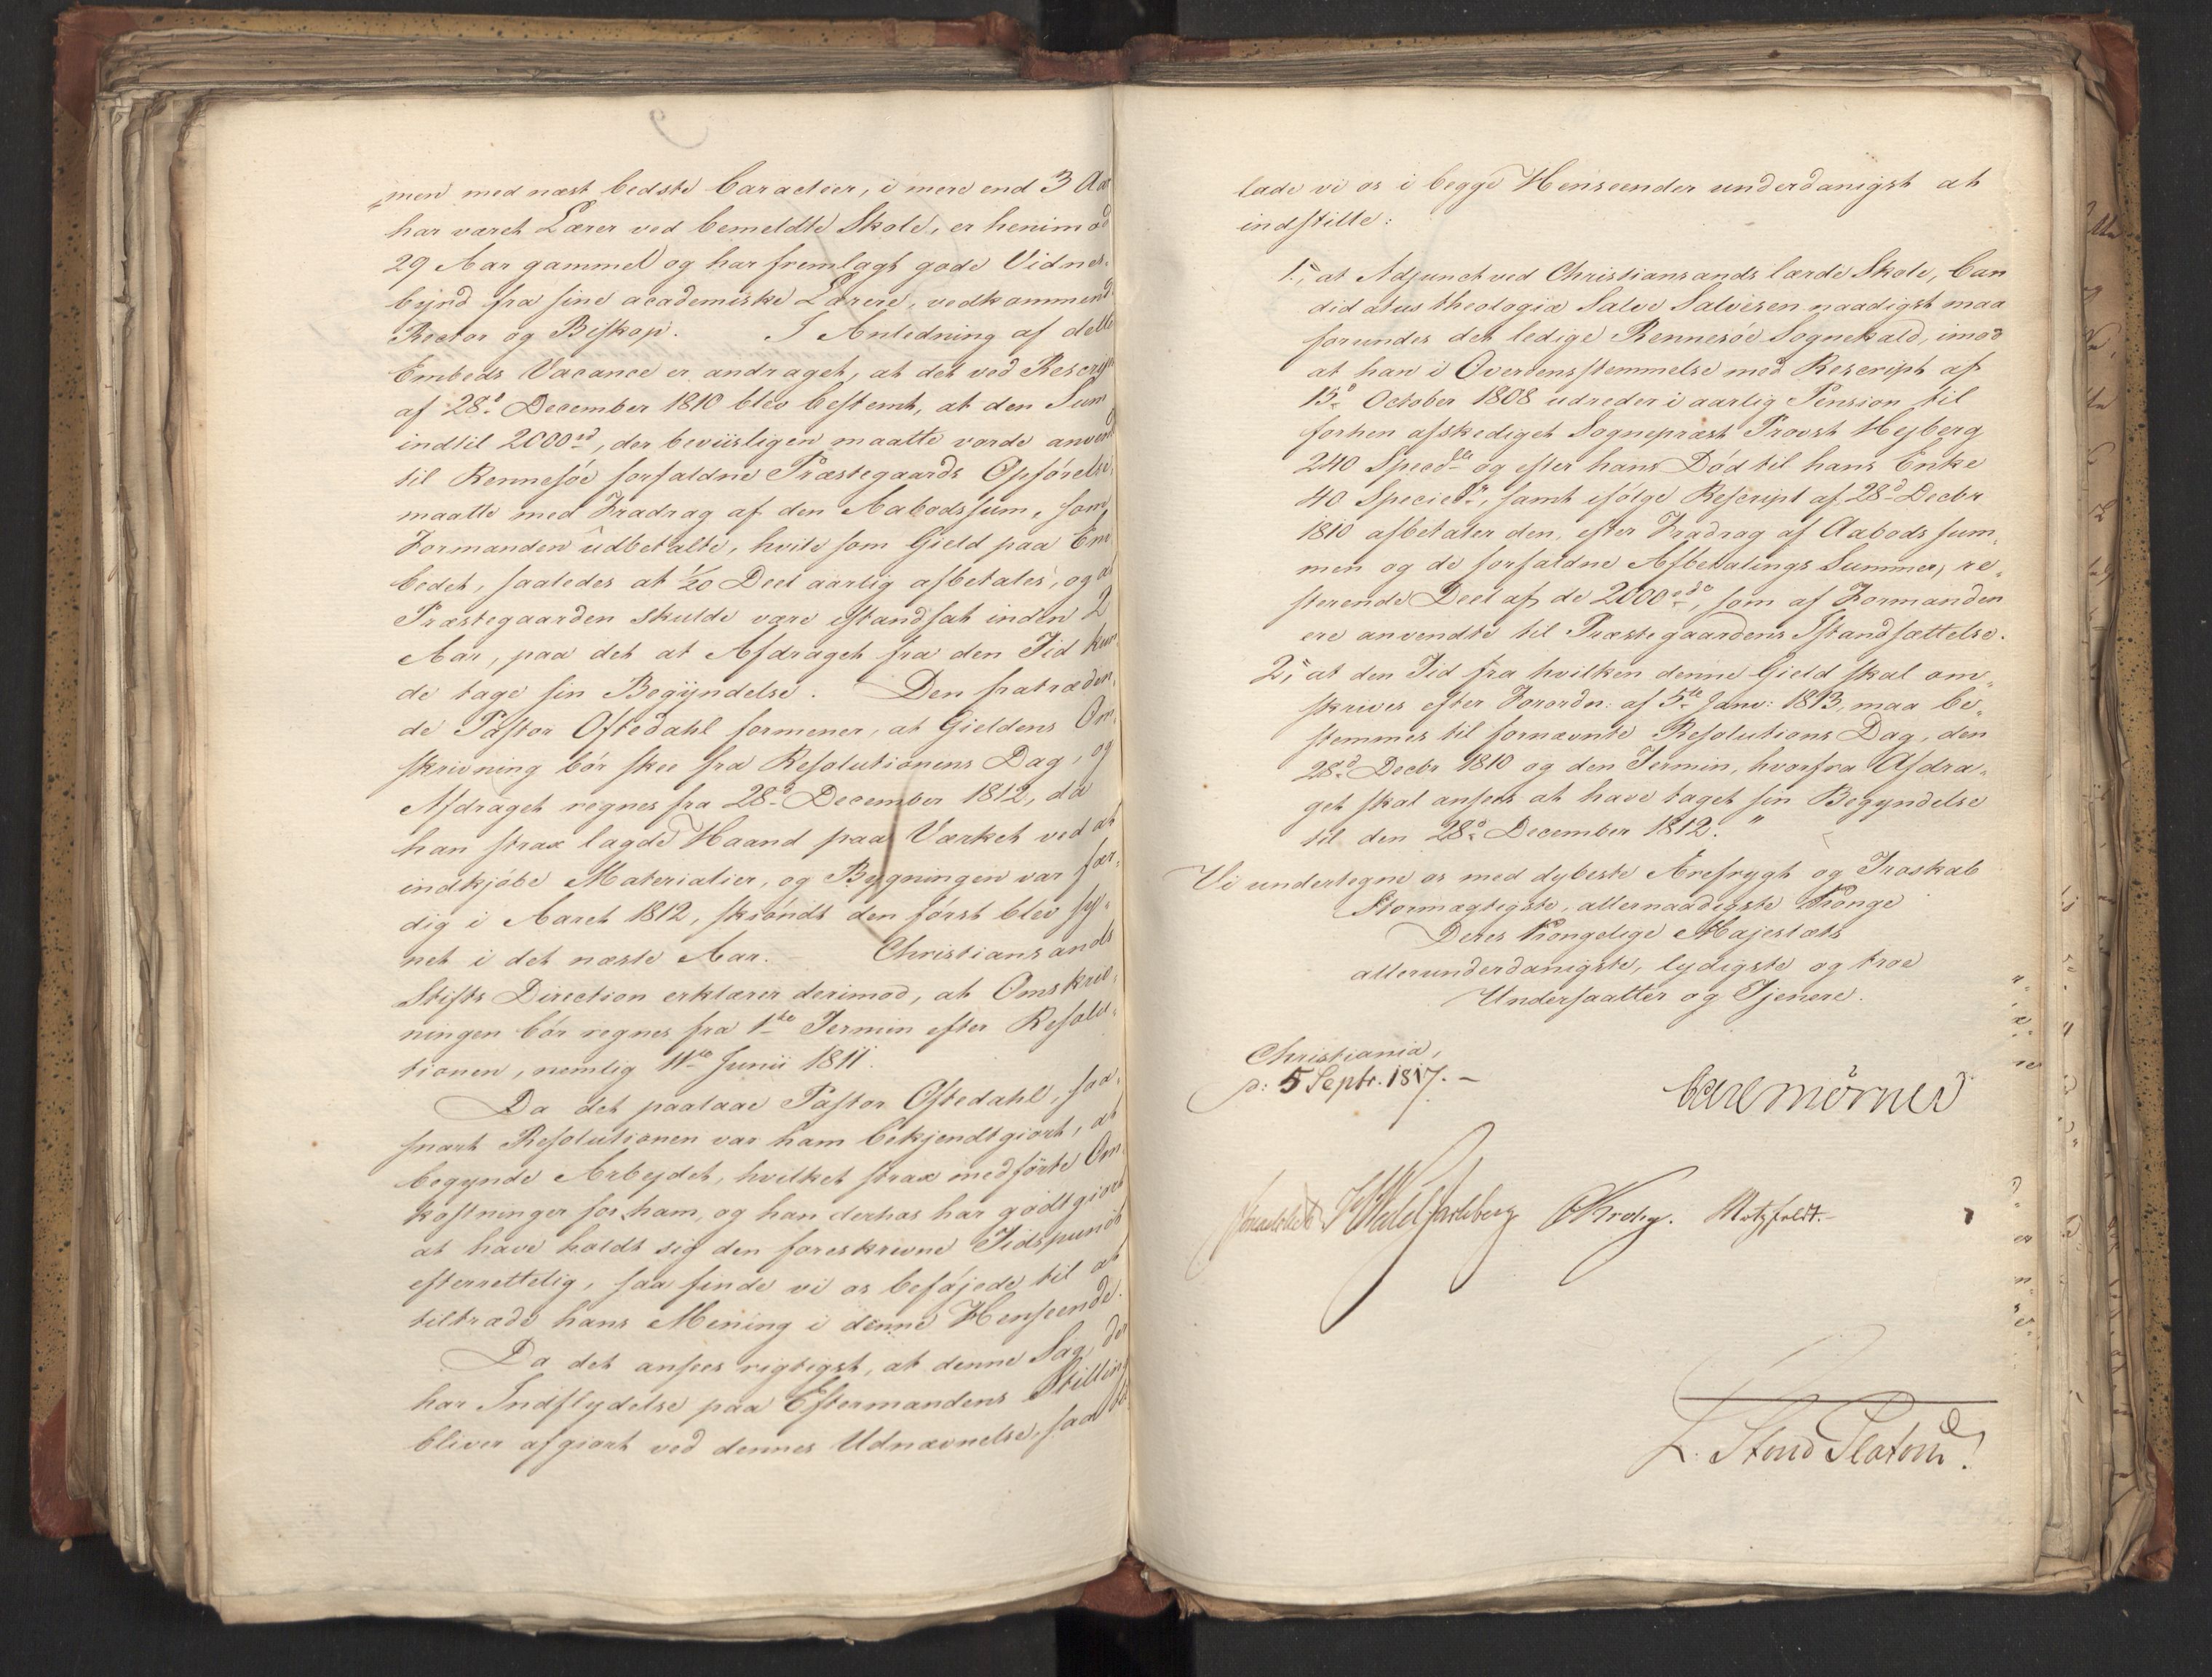 „men med næst bedste Caracteer, i mere end 3 Aar
har været Lærer ved bemeldte Skole, er henimod
29 Aar gammel og har fremlagt gode Vidnes-
byrd fra sine academiske Lærere, vedkommende
Rector og Biskop. I Anledning af dette
Embeds Vacance er andraget, at det ved Rescript
af 28d December 1810 blev bestemt, at den Sum
indtil 2000 rd, der beviisligen maatte vorde anvendt
til Rennesöe forfaldne Præstegaards Opförelse,
maatte med Fradrag af den Aabodssum, som
Formanden udbetalte, hvile som Gield paa Em-
bedet, saaledes at 1/20 Deel aarlig afbetales, og at
Præstegaarden skulde være istandsat inden 2
Aar, paa det at Afdraget fra den Tid kun-
de tage sin Begyndelse. Den fratræden-
de Pastor Oftedahl formener, at Gieldens Om-
skrivning bör skee fra Resolutionens Dag, og
Afdraget regnes fra 28d December 1812, da
han strax lagde Haand paa Værket ved at
indkjöbe Materialier, og Bygningen var fær-
dig i Aaret 1812, skiöndt den först blev sy-
net i det næste Aar. Christiansands
Stifts Direction erklærer derimod, at Omskriv-
ningen bör regnes fra 1ste Termin efter Resolu-
tionen, nemlig 11te Junii 1811.
Da det paalaae Pastor Oftedahl, saa-
snart Resolutionen var ham bekjendtgiort, at
begynde Arbeydet, hvilket strax medförte Om-
kostninger for ham, og han derhos har godtgiort
at have holdt sig den foreskrevne Tidspunct
efterrettelig, saa finde vi os beföjede til at
tiltræde hans Mening i denne Henseende.
Da det ansees rigtigst, at denne Sag, der
har Indflydelse paa Eftermandens Stilling
bliver afgiort ved dennes Udnævnelse, saa
lade vi os i begge Henseender underdanigst at
indstille:
1., at Adjunct ved Christiansands lærde Skole, Can
didatus theologiæ Salve Salvesen naadigst maa
forundes det ledige Rennesöe Sognekald, imod
at han i Overeensstemmelse med Rescript af
15d October 1808 udreder i aarlig Pension til
forhen afskediget Sognepræst Provst Hejberg
240 Specdlr og efter hans Död til hans Enke
40 Speciedlr, samt ifölge Rescript af 28d Decbr
1810 afbetaler den, efter Fradrag af Aabods sum-
men og de forfaldne Afbetalings Summer, re-
sterende Deel af de 2000 rdr, som af Formanden
ere anvendte til Præstegaardens Istandsættelse.
2., at den Tid fra hvilken denne Gield skal om-
skrives efter Forordn: af 5te Janv: 1813, maa be-
stemmes til fornævnte Resolutions Dag, den
28d Decbr 1810 og den Termin, hvorfra Afdra-
get skal ansees at have taget sin Begyndelse
til den 28d December 1812."
Vi undertegne os med dybeste Ærefrygt og Troskab
Stormægtigste, allernaadigste Konge
Deres Kongelige Majestæts
allerunderdanigste, lydigste og troe
Undersaatter og Tjenere.
Christiania,
d: 5 Septr. 1817. –
Carl Mörner
Sommerhielm HWedel Jarlsberg CKrohg. Motzfeldt. –
L. Stoud Platou